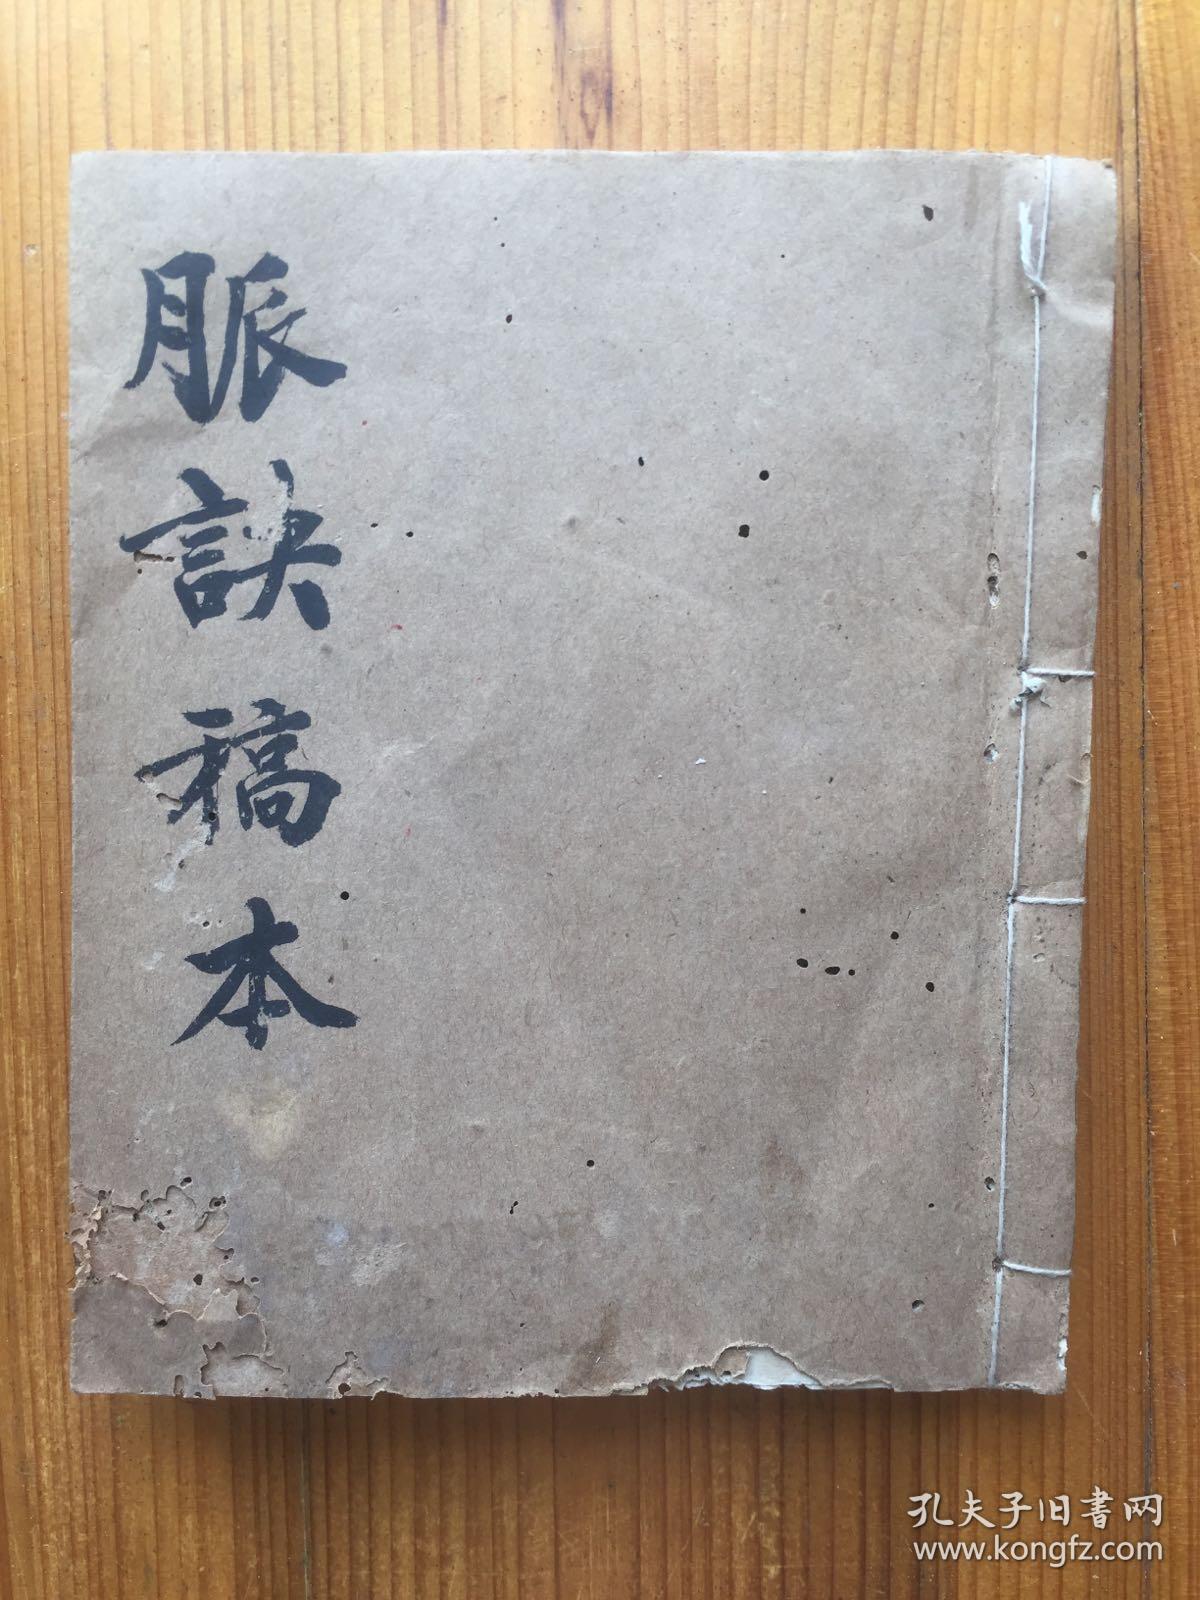 脈訣稿本
孔夫子旧書网
www.kongfz.com